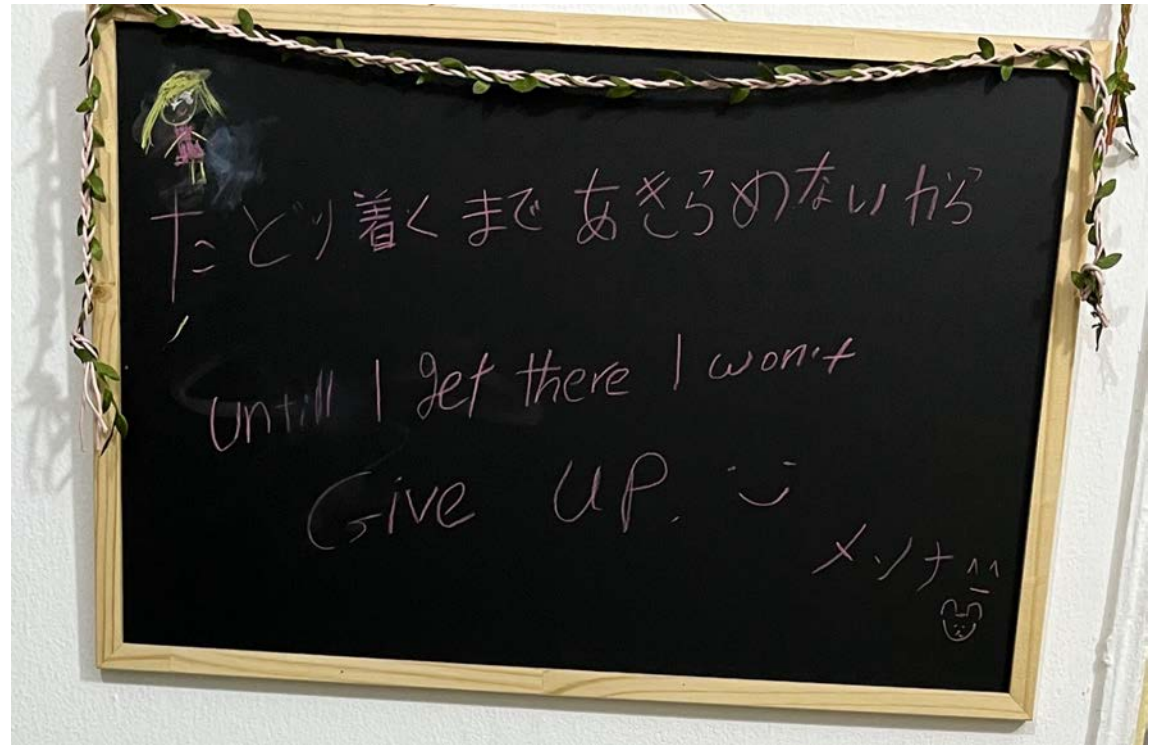 たどり着くまであきらめないから
untill I get there I won't
Give UP. :)
メンナ ^^